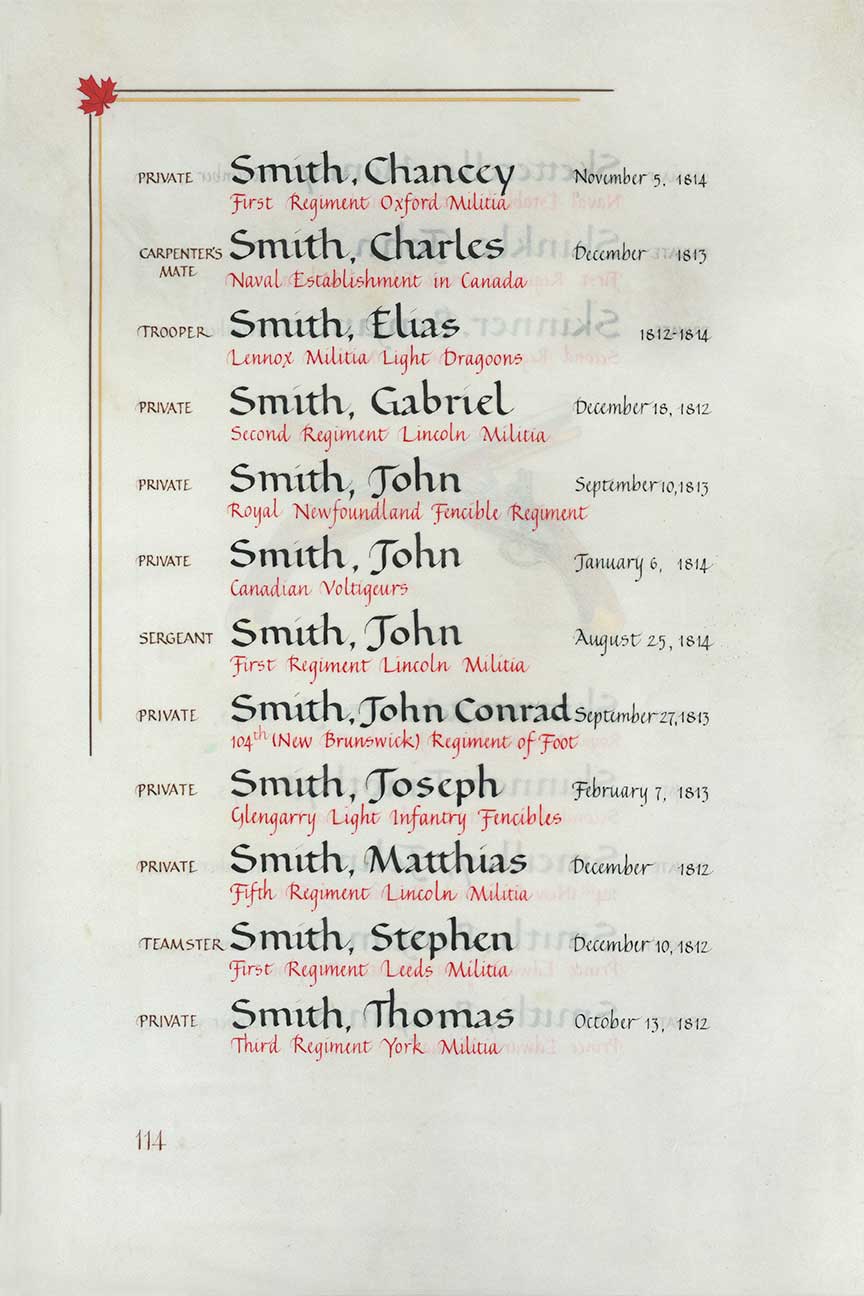 PRIVATE Smith, Chancey November 5, 1814
First Regiment Oxford Militia
CARPENTER'S MATE Smith, Charles December 1813
Naval Establishment in Canada
TROOPER Smith, Elias 1812-1814
Lennox Militia Light Dragoons
PRIVATE Smith, Gabriel December 18, 1812
Second Regiment Lincoln Militia
PRIVATE Smith, John September 10, 1813
Royal Newfoundland Fencible Regiment
PRIVATE Smith, John January 6, 1814
Canadian Voltigeurs
SERGEANT Smith, John August 25, 1814
First Regiment Lincoln Militia
PRIVATE Smith, John Conrad September 27, 1813
104th (New Brunswick) Regiment of Foot
PRIVATE Smith, Joseph February 7, 1813
Glengarry Light Infantry Fencibles
PRIVATE Smith, Matthias December 1812
Fifth Regiment Lincoln Militia
TEAMSTER Smith, Stephen December 10, 1812
First Regiment Leeds Militia
PRIVATE Smith, Thomas October 13, 1812
Third Regiment York Militia
114